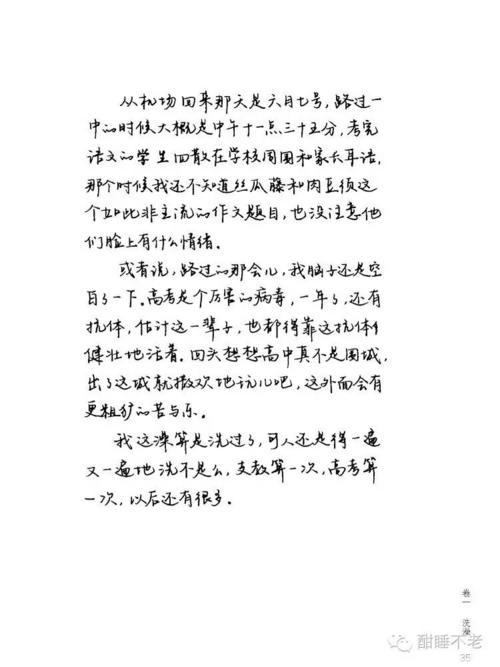 从机场回来那天是六月七号,路过一
中的时候大概是中午十一点三十五分,考完
语文的学生四散在学校周围和家长耳语,
那个时候我还不知道丝瓜藤和肉豆须这
个如此非主流的作文题目,也没注意他
们脸上有什么情绪。
或者说,路过的那会儿,我脑子还是空
白了一下。高考是个厉害的病毒,一年了,还有
抗体,估计这一辈子,也都得靠这抗体
健壮地活着。回头想想高中真不是围城,
出了这城就撒欢地玩儿吧,这外面会有
更粗犷的苦与乐。
我这澡算是洗过了,可人还是得一遍
又一遍地洗不是么,支教算一次,高考算
一次,以后还有很多。
卷一 洗澡
酣睡不老
35